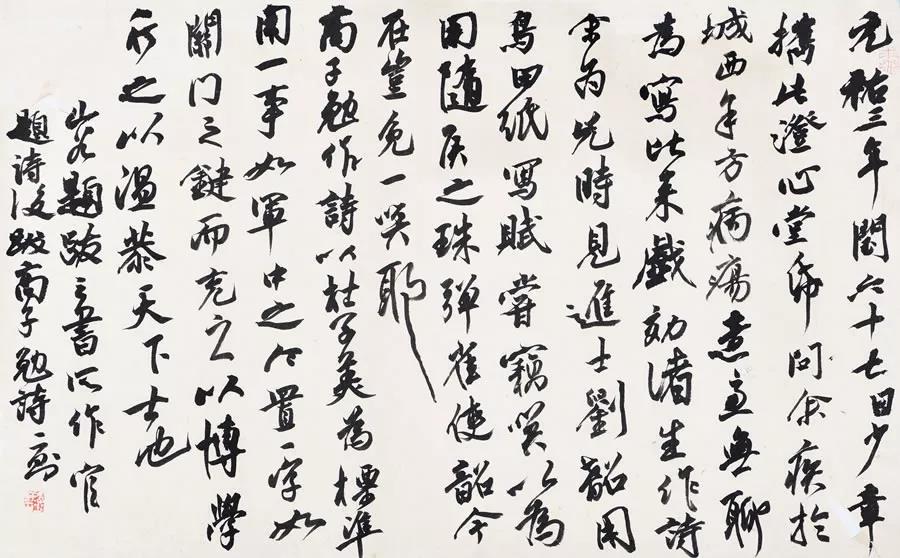 元祐三年閏六十七日少章
攜此澄心堂紙問余疾於
城西方病瘍意無聊
為寫此來戲效諸生作詩
余為兒時見進士劉韶用
烏田紙寫賦嘗竊笑以為
用隨侯之珠彈雀使韶今
在豈免一笑耶
高子勉作詩以杜子美為標準
用一事如軍中之令置一字如
關門之鍵而充之以博學
行之以溫恭天下士也
山谷題跋之書所作官
題詩後跋高子勉詩二則